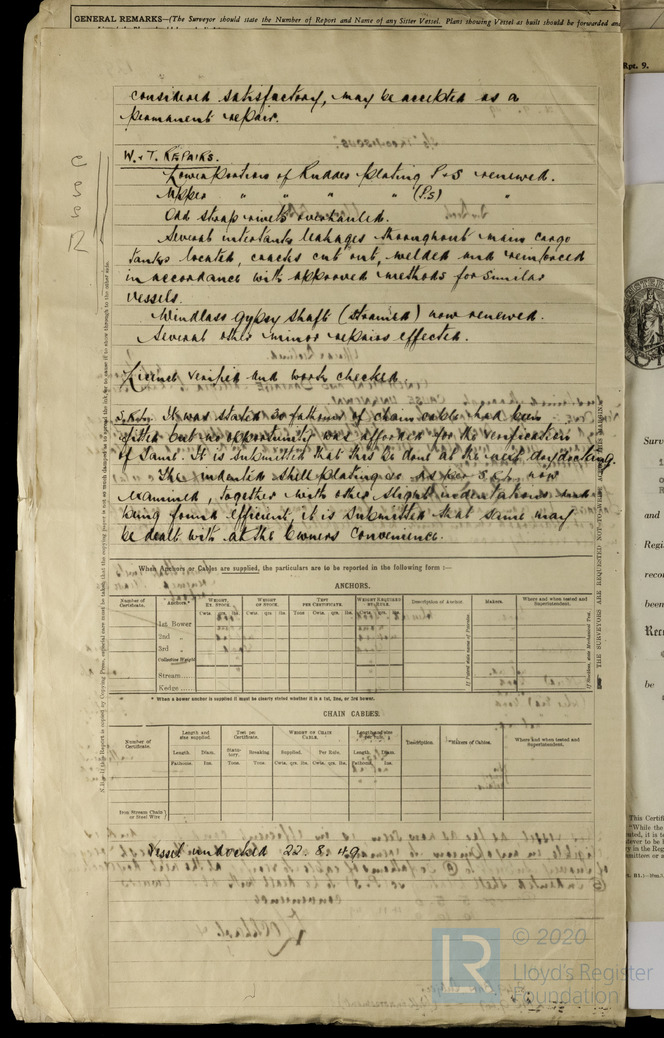 GENERAL REMARKS—(The Surveyor should state the Number of Report and Name of any Sister Vessel. Plans showing Vessel as built should be forwarded and
Rpt. 9.
considered satisfactory, may be accepted as a
permanent repair.
W. & T. REPAIRS.
C
S
S
R
Lower portions of Rudder Plating P & S renewed.
Upper " " " " (P.S) "
Odd strap rivets overhauled.
Several intertank leakages throughout main cargo
tanks located, cracks cut out, welded and reinforced
in accordance with approved methods for similar
vessels.
Windlass Gypsy Shaft (strained) now renewed.
Several other minor repairs effected.
verified and work checked.
It was stated 30 fathoms of chain cable had been
fitted but no opportunity was afforded for the verification
of same. It is submitted that this be done at the next drydocking.
The indented shell plating as per now
examined, together with other slight indentations and
being found efficient, it is submitted that same may
be dealt with at the Owners convenience.
When Anchors or Cables are supplied, the particulars are to be reported in the following form :—
ANCHORS.
Number of Certificate.
Anchors.*
WEIGHT, EX. STOCK.
WEIGHT OF STOCK.
TEST PER CERTIFICATE.
WEIGHT REQUIRED BY RULE.
Description of Anchor.
Makers.
Where and when tested and Superintendent.
Cwts. qrs. lbs.
Cwts. qrs. lbs.
Tons Cwts. qrs. lbs.
Cwts. qrs. lbs.
1st Bower
2nd "
3rd "
Collective Weight
Stream
Kedge
* When a bower anchor is supplied it must be clearly stated whether it is a 1st, 2nd, or 3rd bower.
CHAIN CABLES.
Number of Certificate.
Length and size supplied.
Test on Certificate.
WEIGHT OF CHAIN CABLE.
Description.
Makers of Cables.
Where and when tested and Superintendent.
Length. Diam.
Statutory. Breaking
Supplied. Per Rule.
Length. Diam.
Fathoms. Ins.
Tons. Tons.
Cwts. qrs. lbs. Cwts. qrs. lbs.
Fathoms. Ins.
Iron Stream Chain or Steel Wire
Vessel undocked 22. 8. 49.
THE SURVEYORS ARE REQUESTED NOT TO WRITE ACROSS THIS MARGIN.
Surv
and
Regi
reco
been
Rec
be
This Certif
"While the
LR
© 2020
Lloyd's Register
Foundation